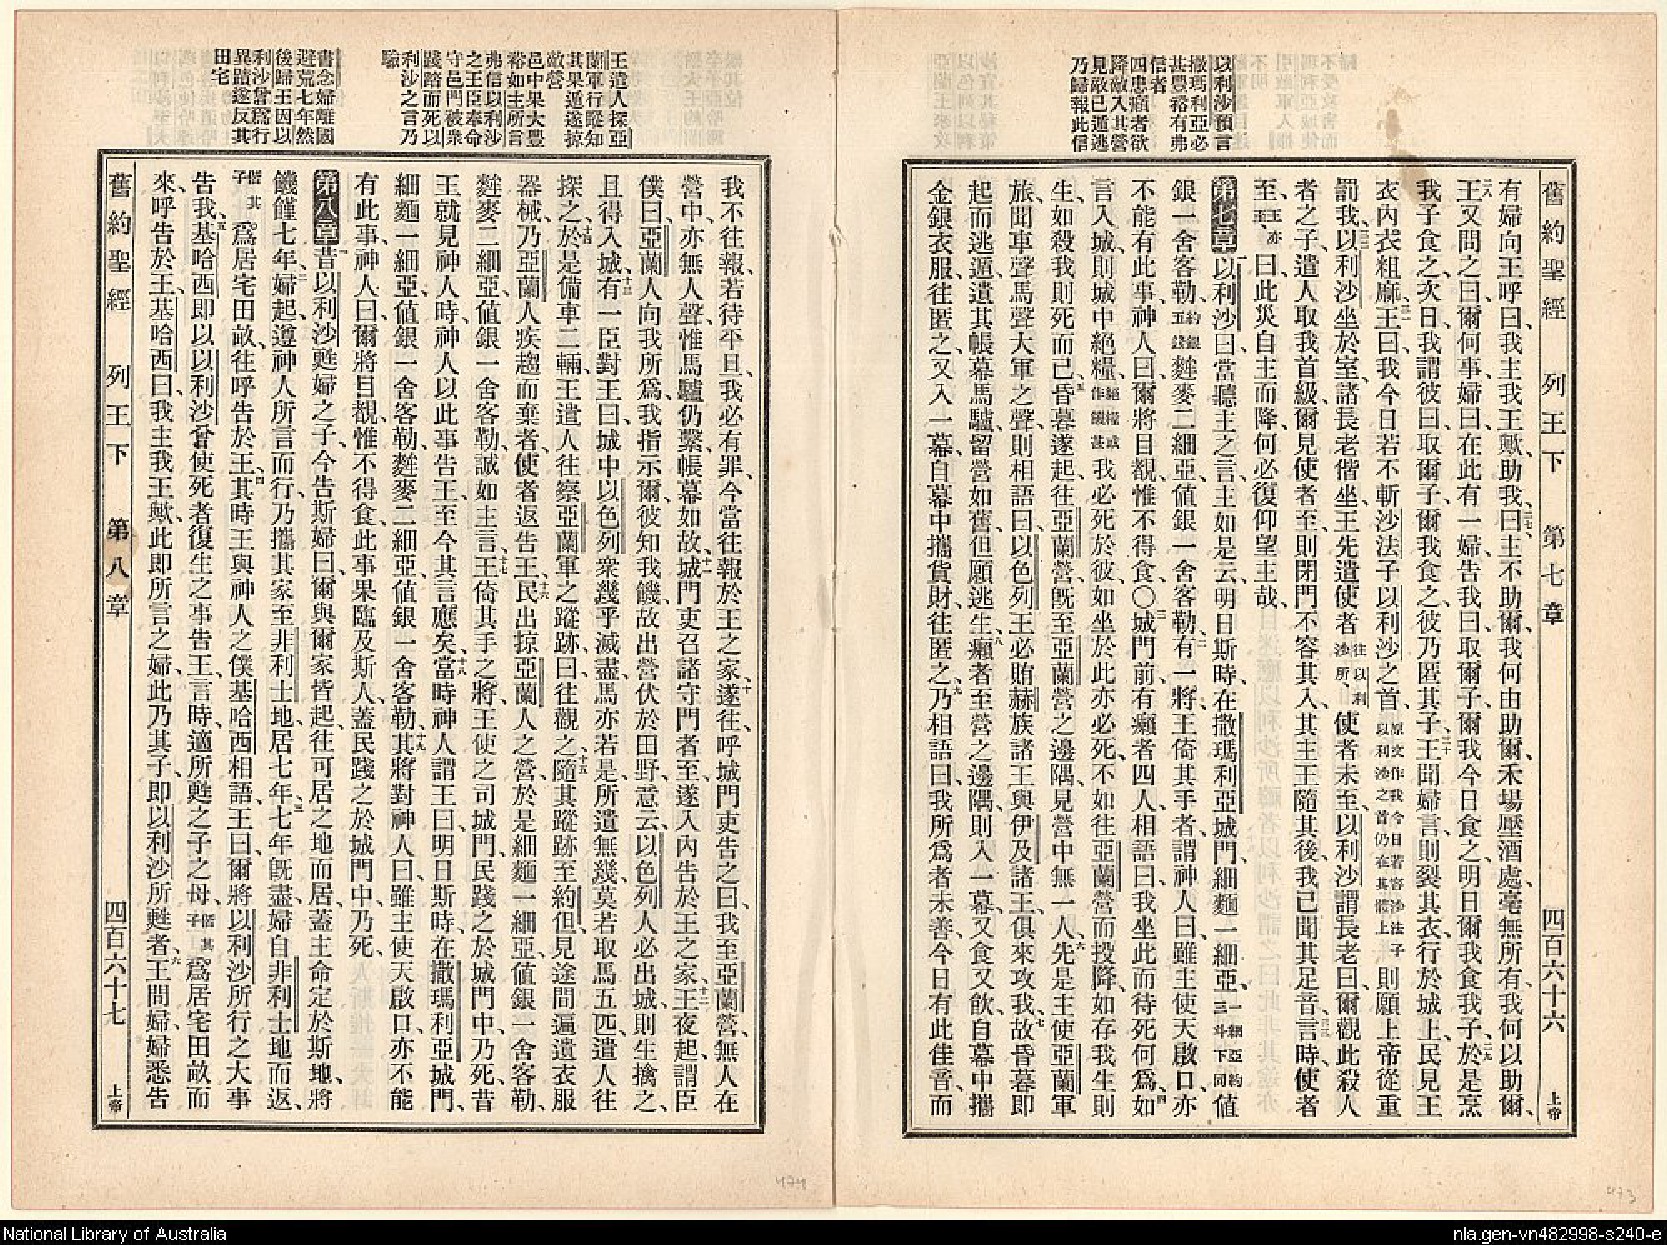 舊約聖經 列王下 第七章 四百六十六 上帝
以利沙預言
撒瑪利亞必
甚豐裕有弗
信者
四患癩者欲
降敵入其營
見敵已遁逃
乃歸報此信
有婦向王呼曰我主我王歟助我曰主不助爾我何由助爾禾場壓酒處毫無所有我何以助爾
王又問之曰爾何事婦曰在此有一婦告我曰取爾子爾我今日食之明日爾我食我子於是烹
我子食之次日我謂彼曰取爾子爾我食之彼乃匿其子王聞婦言則裂其衣行於城上民見王
衣內衣粗麻王曰我今日若不斬沙法子以利沙之首原文作我今日若容沙法子以利沙之首仍在其體上則願上帝從重
罰我以利沙坐於室諸長老偕坐王先遣使者往以利沙所使者未至以利沙謂長老曰爾觀此殺人
者之子遣人取我首級爾見使者至則閉門不容其入其主王隨其後我已聞其足音言時使者
至王亦曰此災自主而降何必復仰望主哉
第七章以利沙曰當聽主之言主如是云明日斯時在撒瑪利亞城門細麵一細亞一細亞約三斗下同值
銀一舍客勒約銀五錢麰麥二細亞值銀一舍客勒有一將王倚其手者謂神人曰雖主使天啟口亦
不能有此事神人曰爾將目覩惟不得食〇城門前有癩者四人相語曰我坐此而待死何為如
言入城則城中絕糧絕糧或作饑甚我必死於彼如坐於此亦必死不如往亞蘭營而投降如存我生則
生如殺我則死而已昏暮遂起往亞蘭營旣至亞蘭營之邊隅見營中無一人先是主使亞蘭軍
旅聞車聲馬聲大軍之聲則相語曰以色列王必賄赫族諸王與伊及諸王俱來攻我故昏暮即
起而逃遁遺其帳幕馬驢留營如舊但願逃生癩者至營之邊隅則入一幕食又飲自幕中攜
金銀衣服往匿之又入一幕自幕中攜貨財往匿之乃相語曰我所為者未善今日有此佳音而
王遣人探亞
蘭軍行蹤知
其果遁遂掠
敵營
邑中果大豐
裕如主所言
弗信以利沙
之王臣奉命
守邑門被衆
踐踏而死以
利沙之言乃
驗
書念婦離國
避荒七年然
後歸王因以
利沙曾為行
異蹟遂反其
田宅
我不往報若待平旦我必有罪今當往報於王之家遂往呼城門吏告之曰我至亞蘭營無人在
營中亦無人聲惟馬驢仍繫帳幕如故城門吏召諸守門者至遂入內告於王之家王夜起謂臣
僕曰亞蘭人向我所為我指示爾彼知我饑故出營伏於田野意云以色列人必出城則生擒之
且得入城有一臣對王曰城中以色列衆幾乎滅盡馬亦若是所遺無幾莫若取馬五匹遣人往
探之於是備車二輛王遣人往察亞蘭軍之蹤跡曰往觀之隨其蹤跡至約但見途間遍遺衣服
器械乃亞蘭人疾趨而棄者使者返告王民出掠亞蘭人之營於是細麵一細亞值銀一舍客勒
麰麥二細亞值銀一舍客勒誠如主言王倚其手之將王使之司城門民踐之於城門中乃死昔
王就見神人時神人以此事告王至今其言應矣當時神人謂王曰明日斯時在撒瑪利亞城門
細麵一細亞值銀一舍客勒麰麥二細亞值銀一舍客勒其將對神人曰雖主使天啟口亦不能
有此事神人曰爾將目覩惟不得食此事果臨及斯人蓋民踐之於城門中乃死
第八章昔以利沙甦婦之子今告斯婦曰爾與爾家皆起往可居之地而居蓋主命定於斯地將
饑饉七年婦起遵神人所言而行乃攜其家至非利士地居七年七年旣盡婦自非利士地而返
偕其子為居宅田畝往呼告於王其時王與神人之僕基哈西相語王曰爾將以利沙所行之大事
告我基哈西即以以利沙曾使死者復生之事告王言時適所甦之子之母偕其子為居宅田畝而
來呼告於王基哈西曰我主我王歟此即所言之婦此乃其子即以利沙所甦者王問婦婦悉告
舊約聖經 列王下 第八章 四百六十七 上帝
474
473
National Library of Australia
nla.gen-vn482998-s240-e